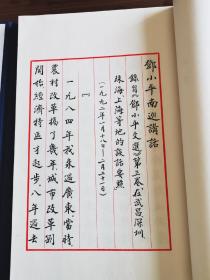 鄧小平南巡講話
錄自《鄧小平文選》第三卷在武昌深圳
珠海上海等地的談話要點
(一九九二年一月十八日—二月二十一日)
一
一九八四年我來過廣東當時
農村改革搞了幾年城市改革剛
開始經濟特區才起步八年過去